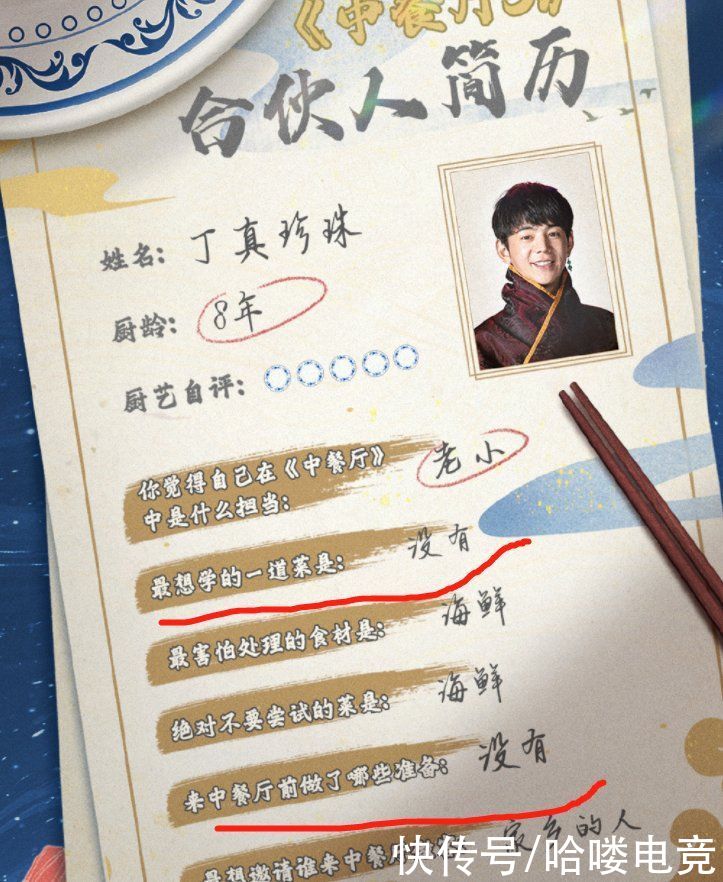 《中餐厅
合伙人简历
姓名：丁真珍珠
厨龄：8年
厨艺自评：
你觉得自己在《中餐厅》
中是什么担当：老小
最想学的一道菜是：没有
最害怕处理的食材是：海鲜
绝对不要尝试的菜是：海鲜
来中餐厅前做了哪些准备：没有
最想邀请谁来中餐厅
家乡的人
快传号/哈喽电竞